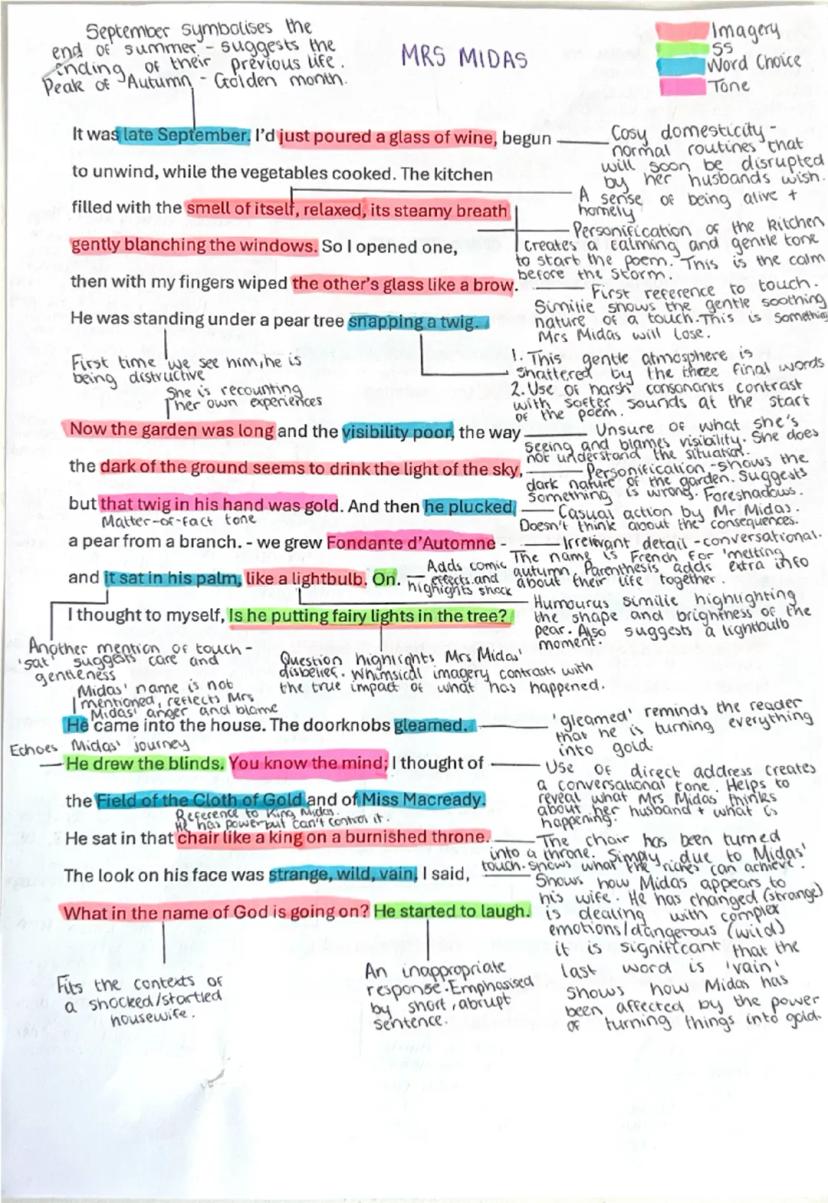 September symbolises the
end of summer - suggests the
ending of their previous life.
Peak of Autumn - Golden month.
MRS MIDAS
Imagery
SS
Word Choice
Tone
It was late September. I'd just poured a glass of wine, begun
Cosy domesticity -
normal routines that
will soon be disrupted
by her husbands wish.
to unwind, while the vegetables cooked. The kitchen
A sense of being alive +
homely
filled with the smell of itself, relaxed, its steamy breath
Personification of the kitchen
creates a calming and gentle tone
to start the poem. This is the calm
before the storm.
gently blanching the windows. So I opened one,
then with my fingers wiped the other's glass like a brow.
First reference to touch.
Similie shows the gentle soothing
nature of a touch. This is something
Mrs Midas will lose.
He was standing under a pear tree snapping a twig.
First time we see him, he is
being distructive
1. This gentle atmosphere is
shattered by the three final words
2. Use of harsh consonants contrast
with softer sounds at the start
of the poem.
She is recounting
her own experiences
Now the garden was long and the visibility poor, the way
Unsure of what she's
seeing and blames visibility. She does
not understand the situation.
the dark of the ground seems to drink the light of the sky,
Personification - shows the
dark nature of the garden. Suggests
something is wrong. Foreshadows.
but that twig in his hand was gold. And then he plucked
Matter-of-fact tone
Casual action by Mr Midas.
Doesn't think about the consequences.
a pear from a branch. - we grew Fondante d'Automne -
Irrelevant detail - conversational.
The name is French for 'melting
autumn. Parenthesis adds extra info
about their life together.
and it sat in his palm, like a lightbulb. On.
Adds comic
effects and
highlights shock
Humourus similie highlighting
the shape and brightness of the
pear. Also suggests a lightbulb
moment.
I thought to myself, Is he putting fairy lights in the tree?
Another mention of touch -
'sat' suggests care and
gentleness
Question highlights Mrs Midas'
disbelief. Whimsical imagery contrasts with
the true impact of what has happened.
Midas' name is not
mentioned, reflects Mrs
Midas' anger and blame
He came into the house. The doorknobs gleamed.
'gleamed' reminds the reader
that he is turning everything
into gold
Echoes Midas' journey
He drew the blinds. You know the mind; I thought of
Use of direct address creates
a conversational tone. Helps to
reveal what Mrs Midas thinks
about her husband + what is
happening.
the Field of the Cloth of Gold and of Miss Macready.
Reference to King Midas.
He has power but can't control it.
He sat in that chair like a king on a burnished throne.
The chair has been turned
into a throne. Simply due to Midas'
touch. Shows what the riches can achieve.
The look on his face was strange, wild, vain, I said,
Shows how Midas appears to
his wife. He has changed (strange)
is dealing with complex
emotions/dangerous (wild)
it is significant that the
last word is 'vain'
shows how Midas has
been affected by the power
of turning things into gold.
What in the name of God is going on? He started to laugh.
Fits the contexts of
a shocked/startled
housewife.
An inappropriate
response. Emphasised
by short, abrupt
sentence.